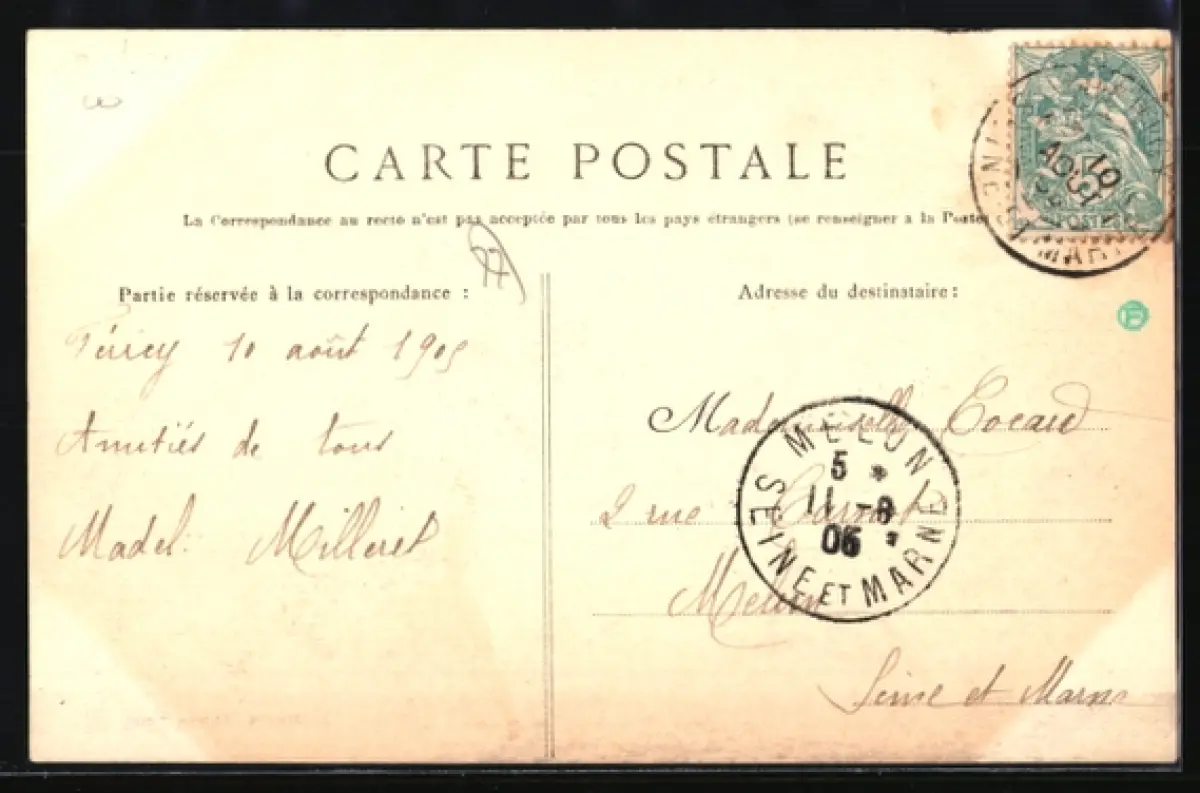 CARTE POSTALE
La Correspondance au recto n'est pas acceptée par tous les pays étrangers (se renseigner a la Poste)
77
Partie réservée à la correspondance :
10 août 1905
Amitiés de tous
Madel. Milleret
Adresse du destinataire :
Mademoiselle Cocard
2 rue
Melun
Seine et Marne
10
AOUT
5
POSTES
MELUN
5 *
11 -8
05 *
SEINE ET MARNE